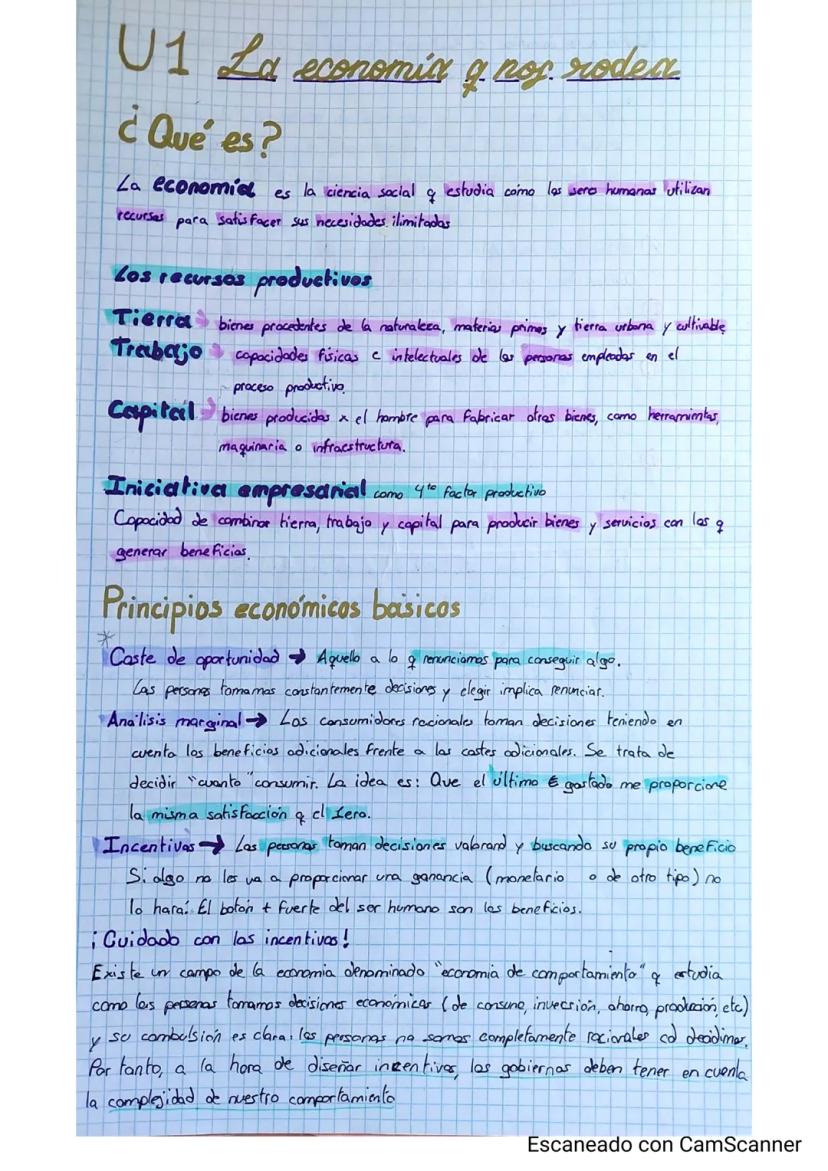 U1 La economía q nos rodea
¿Qué es?
La economía es la ciencia social q estudia como los seres humanos utilizan
recursos para satisfacer sus necesidades ilimitadas
Los recursos productivos
Tierra → bienes procedentes de la naturaleza, materias primas y tierra urbana y cultivable
Trabajo → capacidades físicas e intelectuales de las personas empleadas en el
proceso productivo.
Capital → bienes producidos x el hombre para fabricar otros bienes, como herramientas,
maquinaria o infraestructura.
Iniciativa empresarial como 4to factor productivo
Capacidad de combinar tierra, trabajo y capital para producir bienes y servicios con los q
generar beneficios.
Principios económicos basicos
* Coste de oportunidad → Aquello a lo q renunciamos para conseguir algo.
Las personas tomamos constantemente decisiones y elegir implica renunciar.
Análisis marginal → Los consumidores racionales toman decisiones teniendo en
cuenta los beneficios adicionales frente a los costes adicionales. Se trata de
decidir "cuanto" consumir. La idea es: Que el último € gastado me proporcione
la misma satisfacción q el 1ero.
Incentivos → Las personas toman decisiones valorand y buscando su propio beneficio
Si algo no les va a proporcionar una ganancia (monetario o de otro tipo) no
lo hará. El botón + fuerte del ser humano son los beneficios.
¡Cuidado con los incentivos!
Existe un campo de la economía denominado "economía de comportamiento" q estudia
como las personas tomamos decisiones económicas (de consumo, inversión, ahorro, producción, etc)
y su conclusión es clara: las personas no somos completamente racionales al decidirnos.
Por tanto, a la hora de diseñar incentivos, los gobiernos deben tener en cuenta
la complejidad de nuestro comportamiento
Escaneado con CamScanner